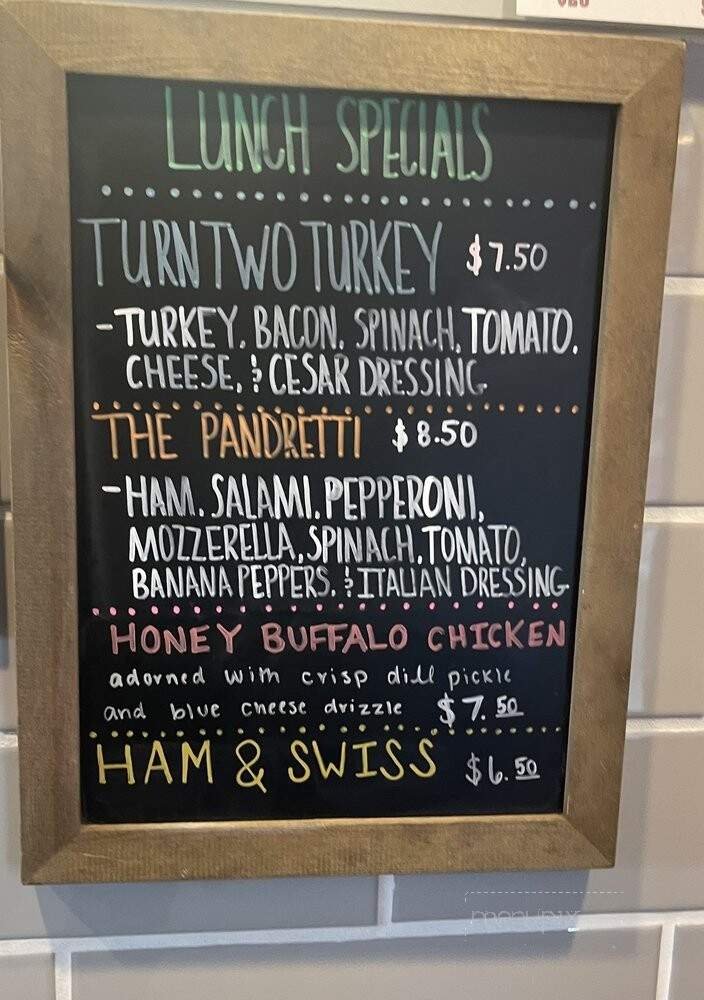 LUNCH SPECIALS
TURN TWO TURKEY $7.50
-TURKEY, BACON, SPINACH, TOMATO,
CHEESE, & CESAR DRESSING
THE PANDRETTI $8.50
-HAM, SALAMI, PEPPERONI,
MOZZERELLA, SPINACH, TOMATO,
BANANA PEPPERS, & ITALIAN DRESSING
HONEY BUFFALO CHICKEN
adorned with crisp dill pickle
and blue cheese drizzle $7.50
HAM & SWISS $6.50
menupix